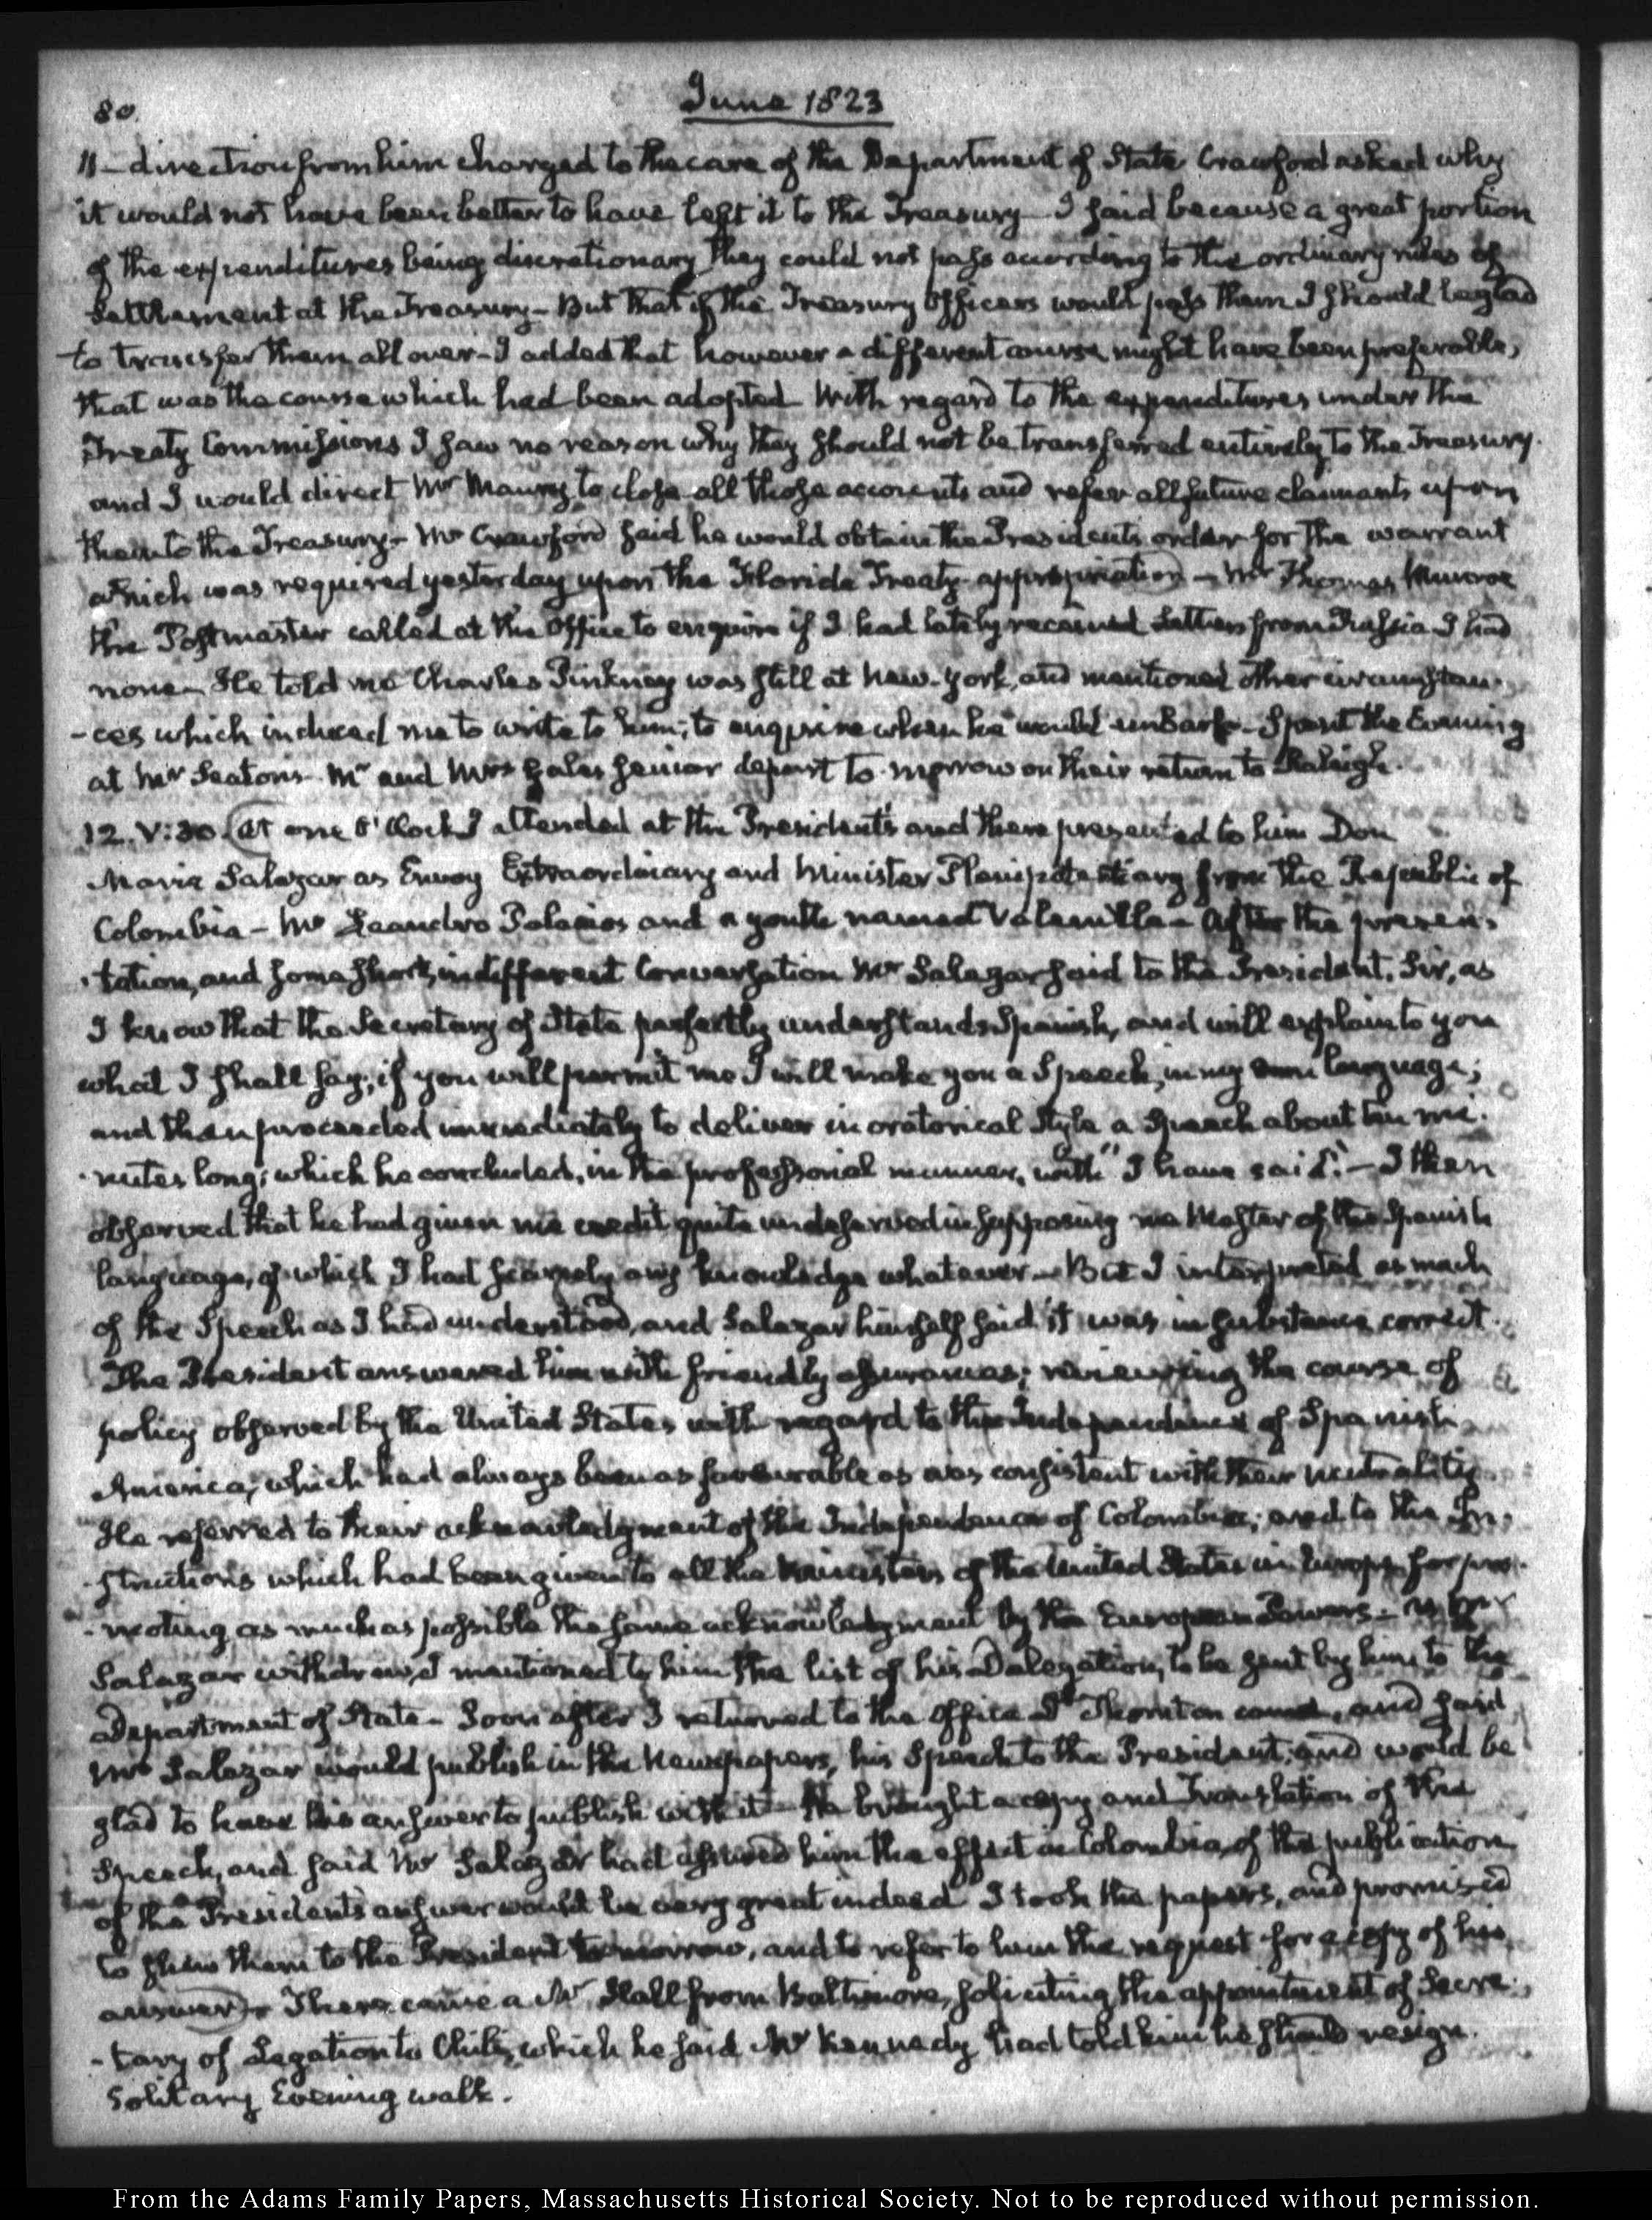 80.
June 1823
11— direction from him charged to the care of the Department of State. Crawford asked why
it would not have been better to have left it to the Treasury— I said because a great portion
of the expenditures being discretionary they could not pass according to the ordinary rules of
Settlement at the Treasury— But that if the Treasury Officers would pass them I should be glad
to transfer them all over— I added that however a different course might have been preferable,
that was the course which had been adopted With regard to the expenditures under the
Treaty Commissions I saw no reason why they should not be transferred entirely to the Treasury.
and I would direct Mr Maury to close all those accounts and refer all future claimants upon
them to the Treasury— Mr Crawford said he would obtain the Presidents order for the warrant
which was required yesterday upon the Florida Treaty appropriation— Mr Thomas Munroe
the Postmaster called at the Office to enquire if I had lately received Letters from Russia I had
none— He told me Charles Pinkney was still at New-York, and mentioned other circumstan-
-ces which induced me to write to him; to enquire when he would embark— Spent the Evening
at Mr Seaton's— Mr and Mrs Gales senior depart to-morrow on their return to Raleigh.
12. V:30. (At one O'Clock I attended at the President's and there presented to him Don
Maria Salazar as Envoy Extraordinary and Minister Plenipotentiary from the Republic of
Colombia— Mr Leandro Palacios and a youth named Valenilla— After the presen-
-tation, and some short, indifferent Conversation Mr Salazar said to the President. Sir, as
I know that the Secretary of State perfectly understands Spanish, and will explain to you
what I shall say; if you will permit me I will make you a Speech, in my own language;
and then proceeded immediately to deliver in oratorical Style a Speech about ten mi-
-nutes long; which he concluded, in the professorial manner, with "I have said."— I then
observed that he had given me credit quite undeserved in supposing me Master of the Spanish
language, of which I had scarcely any knowledge whatever— But I interpreted as much
of the Speech as I had understood, and Salazar himself said it was in substance correct.
The President answered him with friendly assurances; reviewing the course of
policy observed by the United States with regard to the Independence of Spanish
America, which had always been as favourable as was consistent with their neutrality.
He referred to their acknowledgment of the Independence of Colombia; and to the In-
-structions which had been given to all the Ministers of the United States in Europe for pro-
-moting as much as possible the same acknowledgment by the European Powers— As Mr
Salazar withdrew, I mentioned to him the list of his Delegation, to be sent by him to the
Department of State— Soon after I returned to the Office Dr Thornton came, and said
Mr Salazar would publish in the Newspapers, his Speech to the President; and would be
glad to have his answer to publish with it— He brought a copy and Translation of the
Speech, and said Mr Salazar had assured him the effect in Colombia, of the publication
of the President's answer would be very great indeed I took the papers, and promised
to shew them to the President to-morrow, and to refer to him the request for a copy of his
answer)— There came a Mr Hall from Baltimore, soliciting the appointment of Secre-
-tary of Legation to Chili, which he said Mr Kennedy had told him he should resign.
Solitary Evening walk.
From the Adams Family Papers, Massachusetts Historical Society. Not to be reproduced without permission.